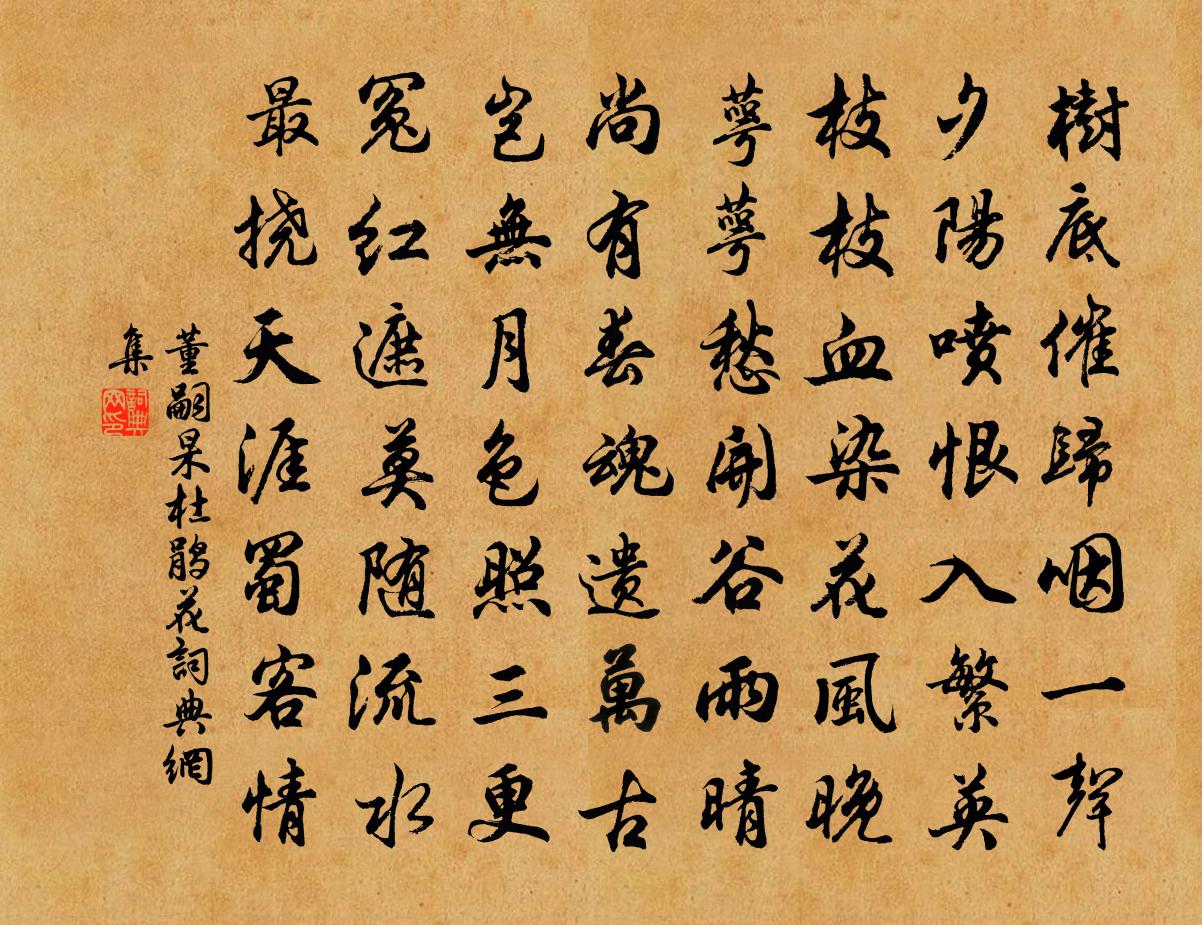 樹底催歸咽一聲
夕陽喷恨入繁英
枝枝血染花風晚
萼萼愁開谷雨晴
尚有春魂遺萬古
岂無月色照三更
冤红遮莫随流水
最挠天涯蜀客情
董嗣杲杜鹃花詞典網
集
詞典
网印